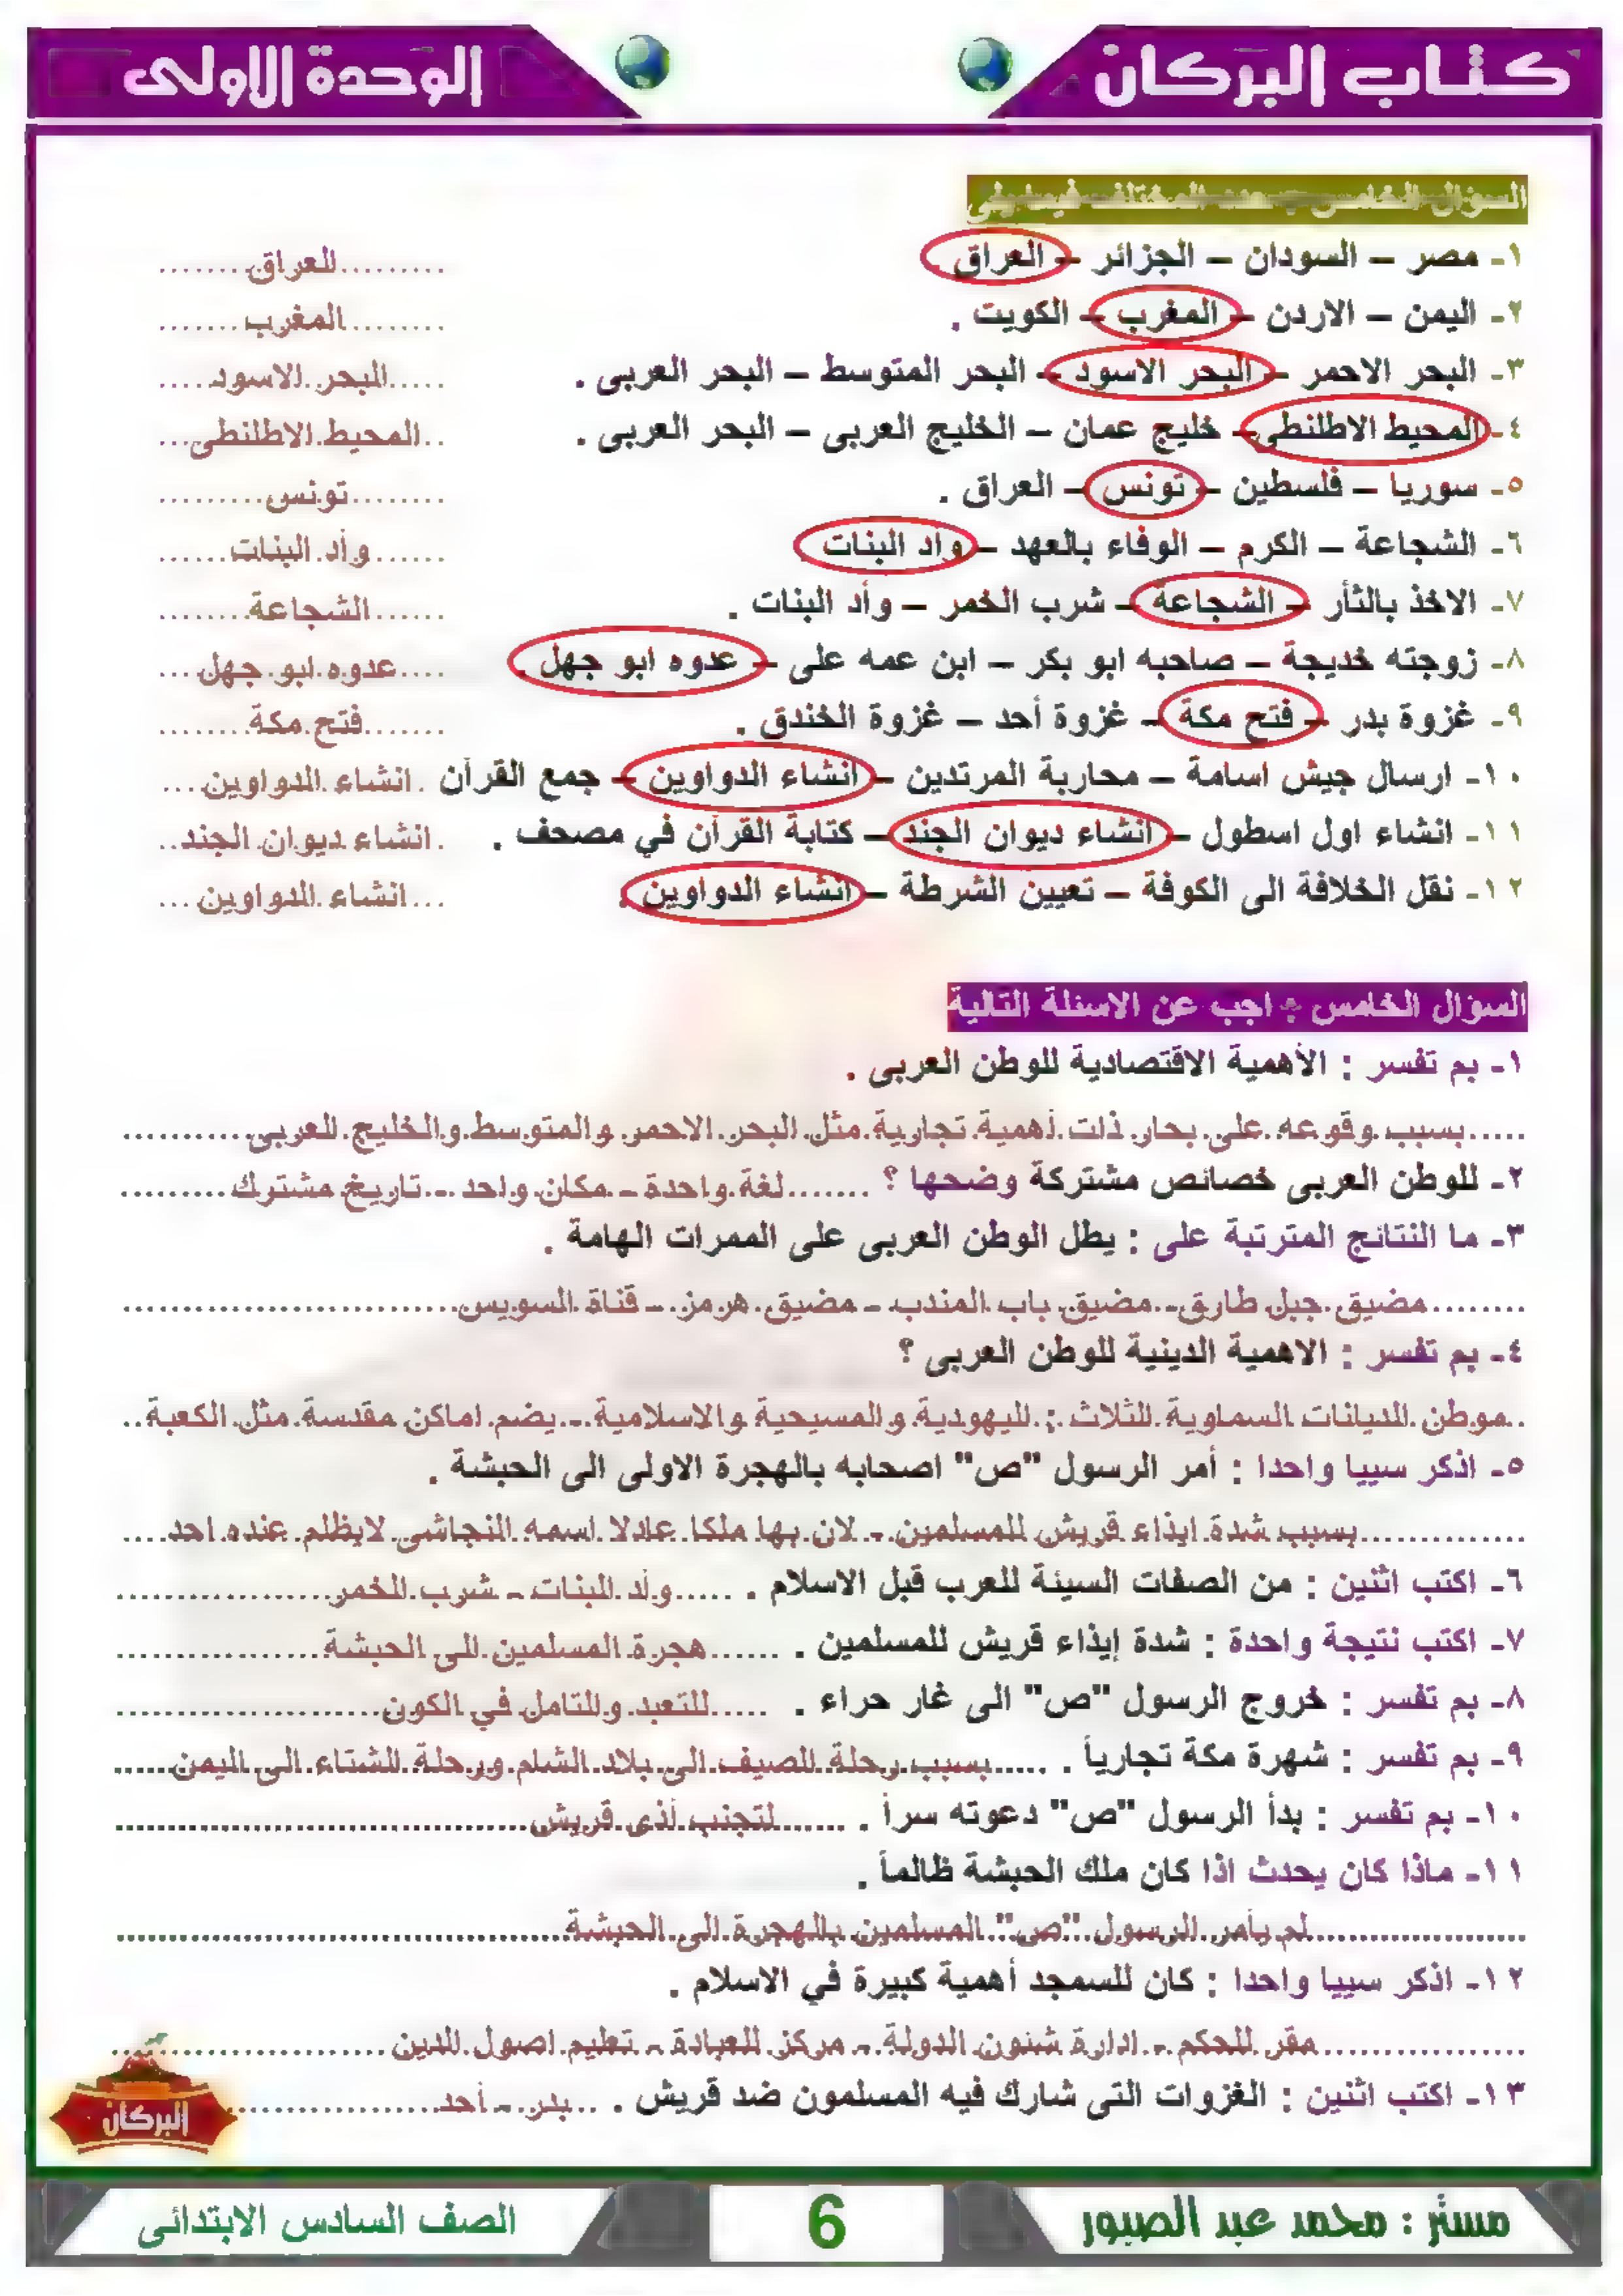 كتاب البركان
الوحدة الاولى
السؤال الخامس : حدد المختلف فيما يلى
١- مصر – السودان – الجزائر – العراق .........العراق........
٢- اليمن – الاردن – المغرب – الكويت . ........المغرب.......
٣- البحر الاحمر – البحر الاسود – البحر المتوسط – البحر العربى . .....البحر الاسود.....
٤- المحيط الاطلنطى – خليج عمان – الخليج العربى – البحر العربى . ..المحيط الاطلنطى...
٥- سوريا – فلسطين – تونس – العراق . ........تونس.........
٦- الشجاعة – الكرم – الوفاء بالعهد – وأد البنات ......وأد البنات......
٧- الاخذ بالثأر – الشجاعة – شرب الخمر – وأد البنات . ......الشجاعة........
٨- زوجته خديجة – صاحبه ابو بكر – ابن عمه على – عدوه ابو جهل . ....عدوه ابو جهل...
٩- غزوة بدر – فتح مكة – غزوة أحد – غزوة الخندق . .......فتح مكة........
١٠- ارسال جيش اسامة – محاربة المرتدين – انشاء الدواوين – جمع القرآن . انشاء الدواوين...
١١- انشاء اول اسطول – انشاء ديوان الجند – كتابة القرآن في مصحف . .انشاء ديوان الجند..
١٢- نقل الخلافة الى الكوفة – تعيين الشرطة – انشاء الدواوين . ...انشاء الدواوين...
السؤال الخامس : اجب عن الاسئلة التالية
١- بم تفسر : الأهمية الاقتصادية للوطن العربى .
.....بسبب وقوعه على بحار ذات أهمية تجارية مثل البحر الاحمر والمتوسط والخليج العربى..........
٢- للوطن العربى خصائص مشتركة وضحها ؟ .......لغة واحدة - مكان واحد - تاريخ مشترك.........
٣- ما النتائج المترتبة على : يطل الوطن العربى على الممرات الهامة .
........مضيق جبل طارق - مضيق باب المندب - مضيق هرمز - قناة السويس............................
٤- بم تفسر : الاهمية الدينية للوطن العربى ؟
..موطن الديانات السماوية الثلاث : اليهودية والمسيحية والاسلامية - يضم اماكن مقدسة مثل الكعبة..
٥- اذكر سببا واحدا : أمر الرسول "ص" اصحابه بالهجرة الاولى الى الحبشة .
..............بسبب شدة ايذاء قريش للمسلمين - لان بها ملكا عادلا اسمه النجاشى لايظلم عنده احد....
٦- اكتب اثنين : من الصفات السيئة للعرب قبل الاسلام . .....وأد البنات - شرب الخمر..................
٧- اكتب نتيجة واحدة : شدة إيذاء قريش للمسلمين . ......هجرة المسلمين الى الحبشة.................
٨- بم تفسر : خروج الرسول "ص" الى غار حراء . .....للتعبد والتامل في الكون......................
٩- بم تفسر : شهرة مكة تجارياً . .....بسبب رحلة الصيف الى بلاد الشام ورحلة الشتاء الى اليمن......
١٠- بم تفسر : بدأ الرسول "ص" دعوته سراً . .......لتجنب أذى قريش...................................
١١- ماذا كان يحدث اذا كان ملك الحبشة ظالماً .
.....................لم يأمر الرسول "ص" المسلمين بالهجرة الى الحبشة......................................
١٢- اذكر سببا واحدا : كان للسمجد أهمية كبيرة في الاسلام .
.................مقر للحكم - ادارة شئون الدولة - مركز للعبادة - تعليم اصول الدين......................
١٣- اكتب اثنين : الغزوات التى شارك فيه المسلمون ضد قريش . ..بدر - أحد..................
البركان
مستر : محمد عبد الصبور
6
الصف السادس الابتدائى